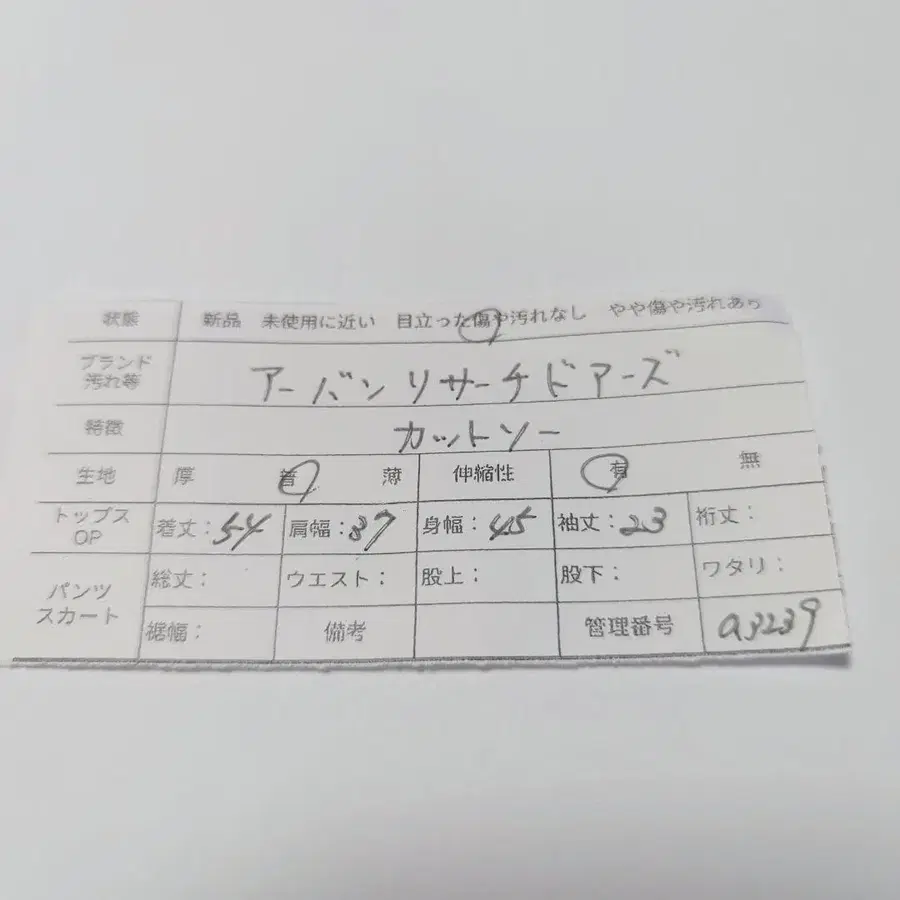 状態 新品 未使用に近い 目立った傷や汚れなし やや傷や汚れあり
ブランド 汚れ等 アーバンリサーチドアーズ
特徴 カットソー
生地 厚 普 薄 伸縮性 有 無
トップス OP 着丈:54 肩幅:37 身幅:45 袖丈:23 裄丈:
パンツ スカート 総丈: ウエスト: 股上: 股下: ワタリ:
裾幅: 備考 管理番号 a3239